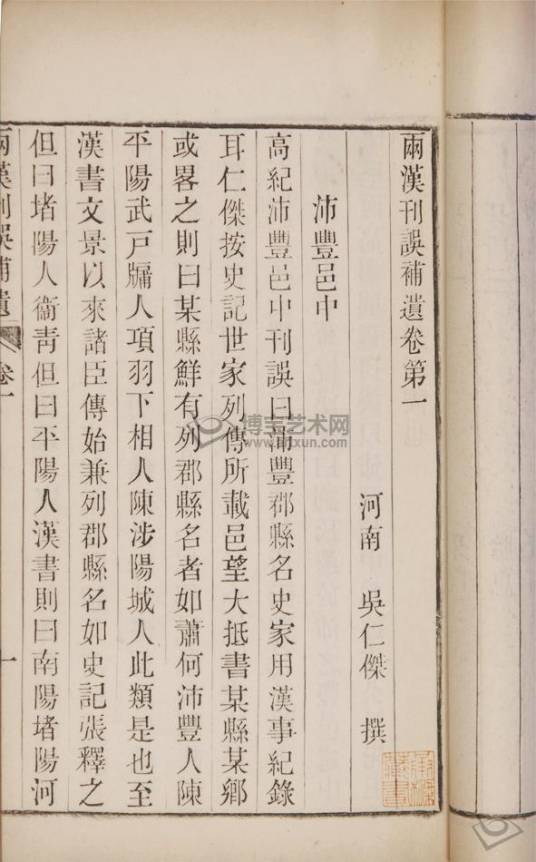 兩漢刊誤補遺卷第一
河南 吳仁傑 撰
沛豐邑中
高紀沛豐邑中刊誤曰沛豐郡縣名史家用漢事紀錄
耳仁傑按史記世家列傳所載邑望大抵書某縣某鄉
或畧之則曰某縣鮮有列郡縣名者如蕭何沛豐人陳
平陽武戸牖人項羽下相人陳涉陽城人此類是也至
漢書文景以來諸臣傳始兼列郡縣名如史記張釋之
但曰堵陽人衞青但曰平陽人漢書則曰南陽堵陽河
兩漢刊誤補遺 卷一 一
博宝艺术网
www.artxun.com